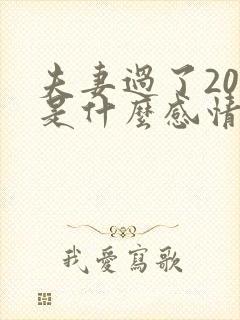 夫妻過了20
是什麼感情
我愛寫歌